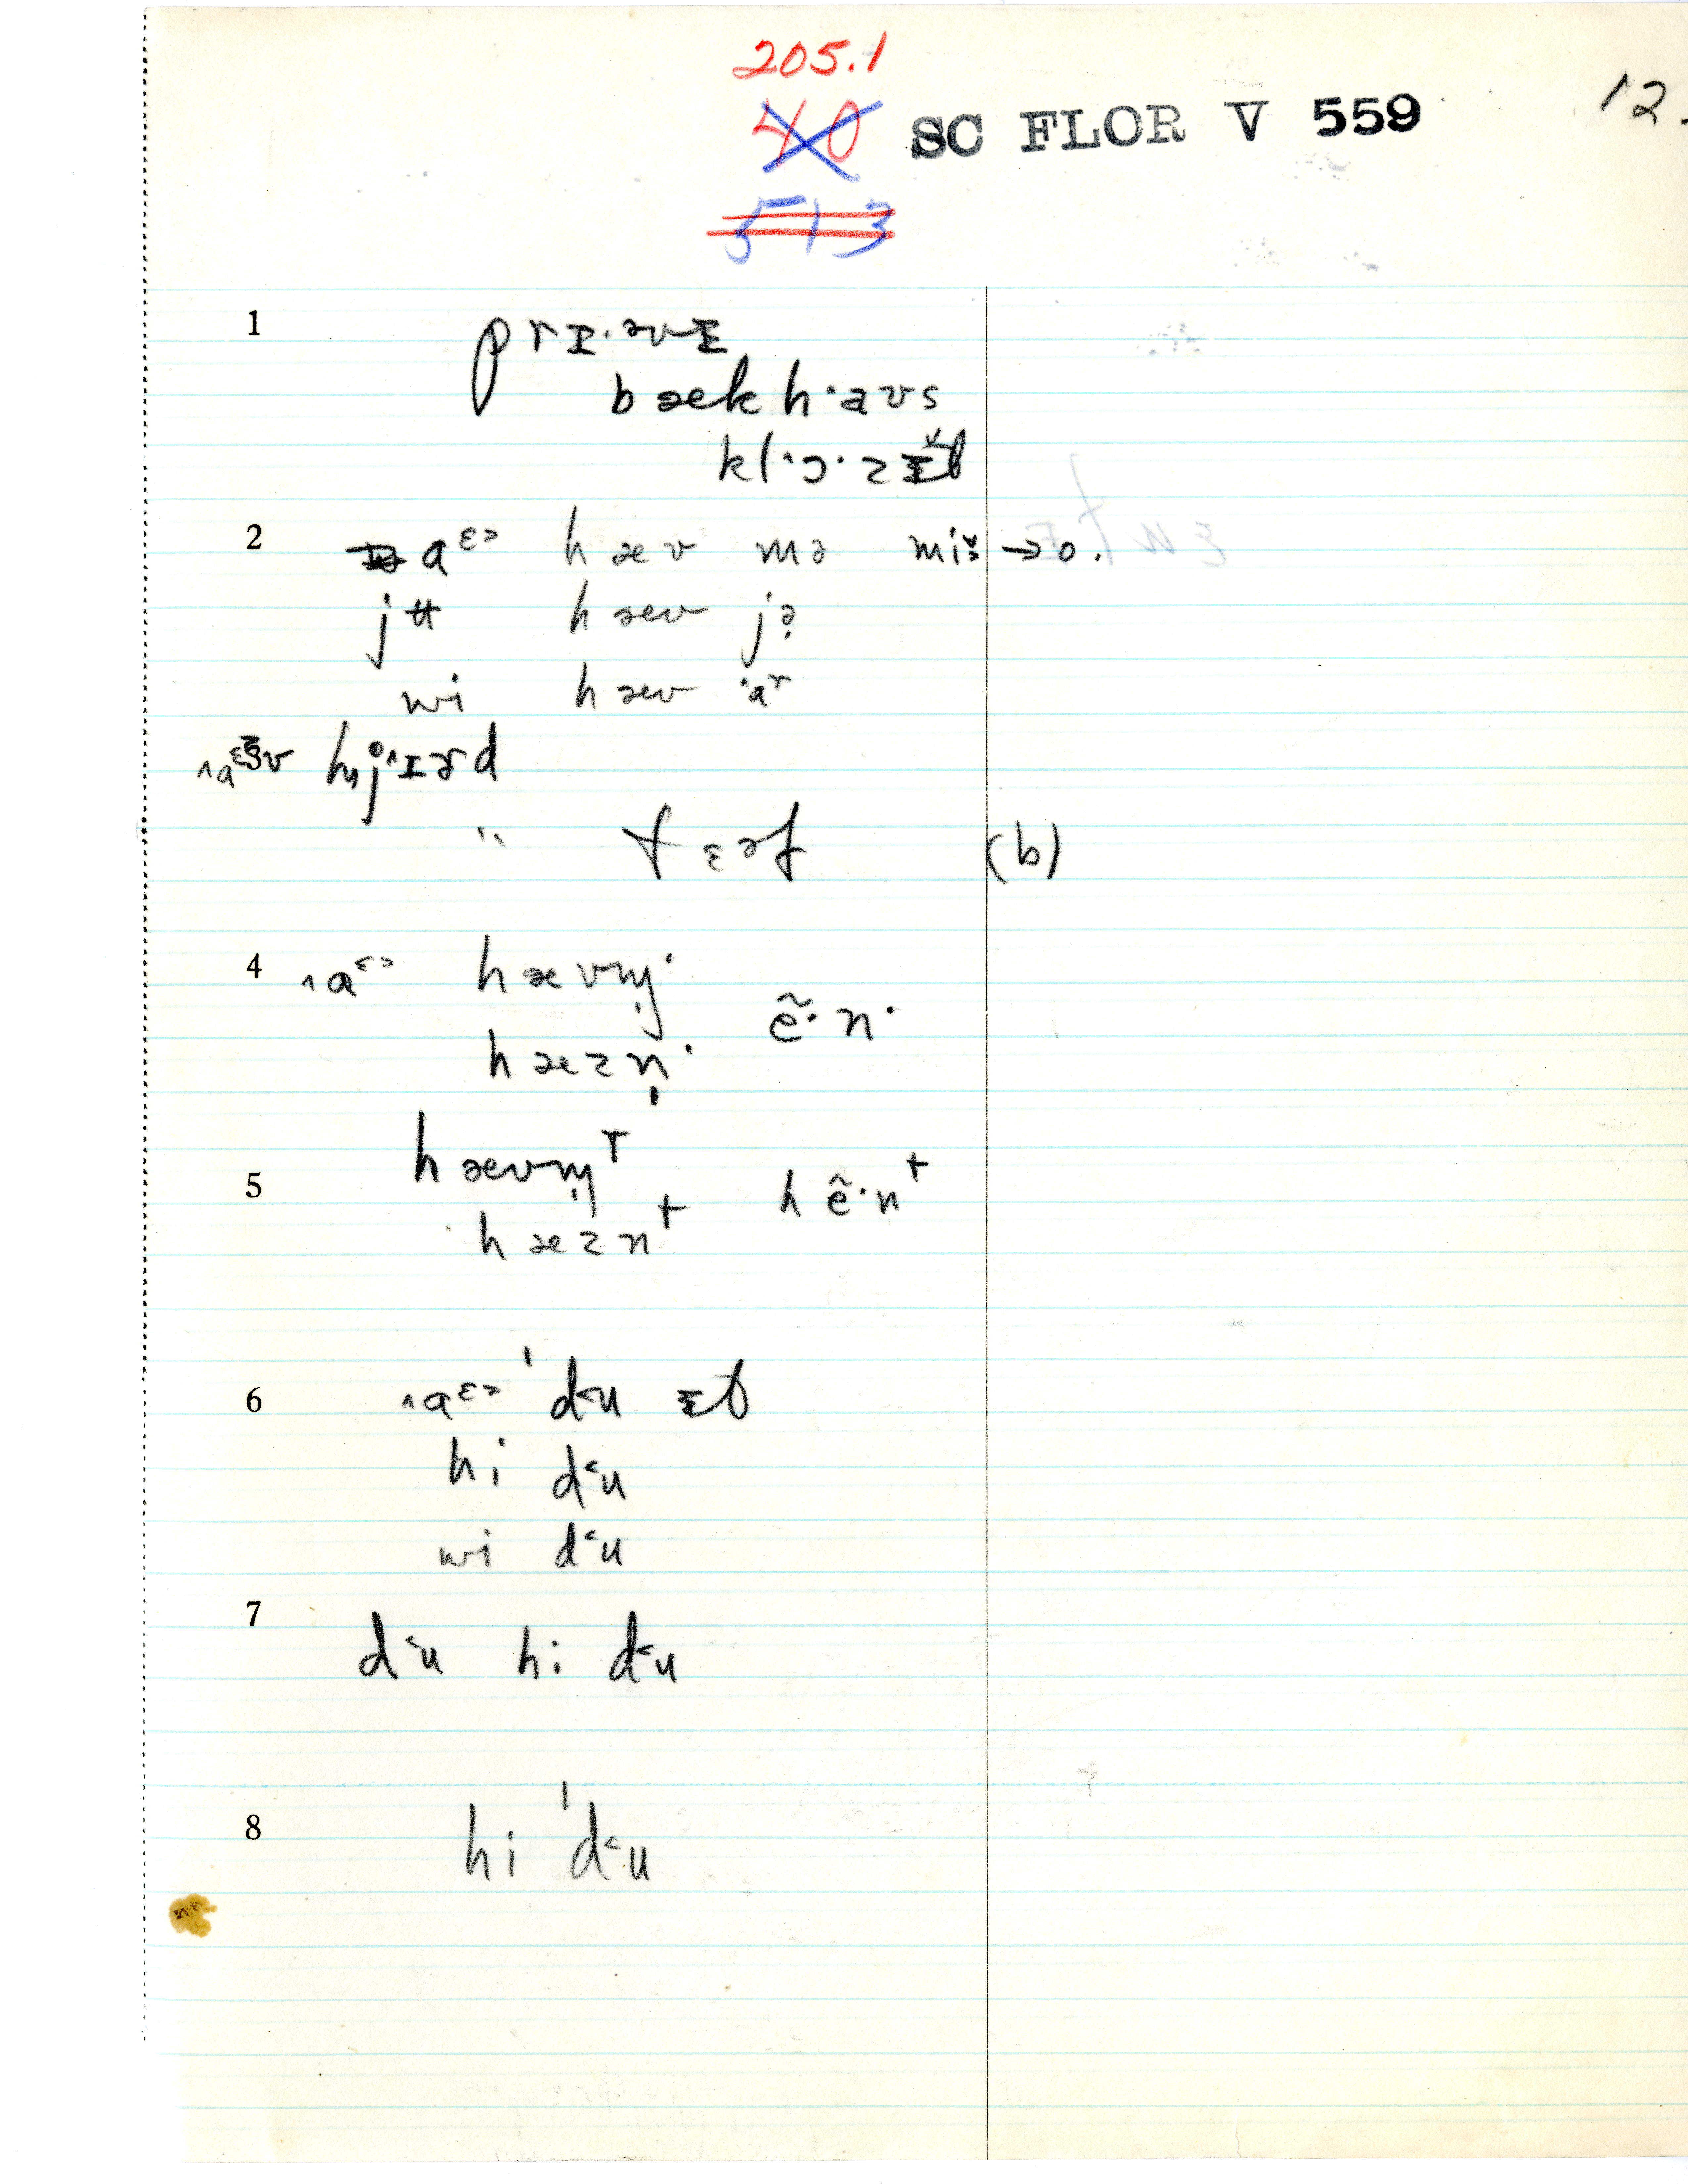 205.1
40 SC FLOR V 559 12.
513
1 prɪ·əvɪ
bæk h·aʊs
klˑɔ·zɪt
2 aᵋ˃ hæv mə miš → o.
jʉ hæv jə
wi hæv ˈaʳ
hj ɪɚd
" fɛəf (b)
4 ˄aᵋ˃ hævm̩·
hæzn̩· ẽ·n·
5 hævm̩ᵗ
hæznᵗ hẽ·nᵗ
6 ˄aᵋ˃ ˈd˂u ɪt
hi d˂u
wi d˂u
7 d˂u hi d˂u
8 hi ˈd˂u